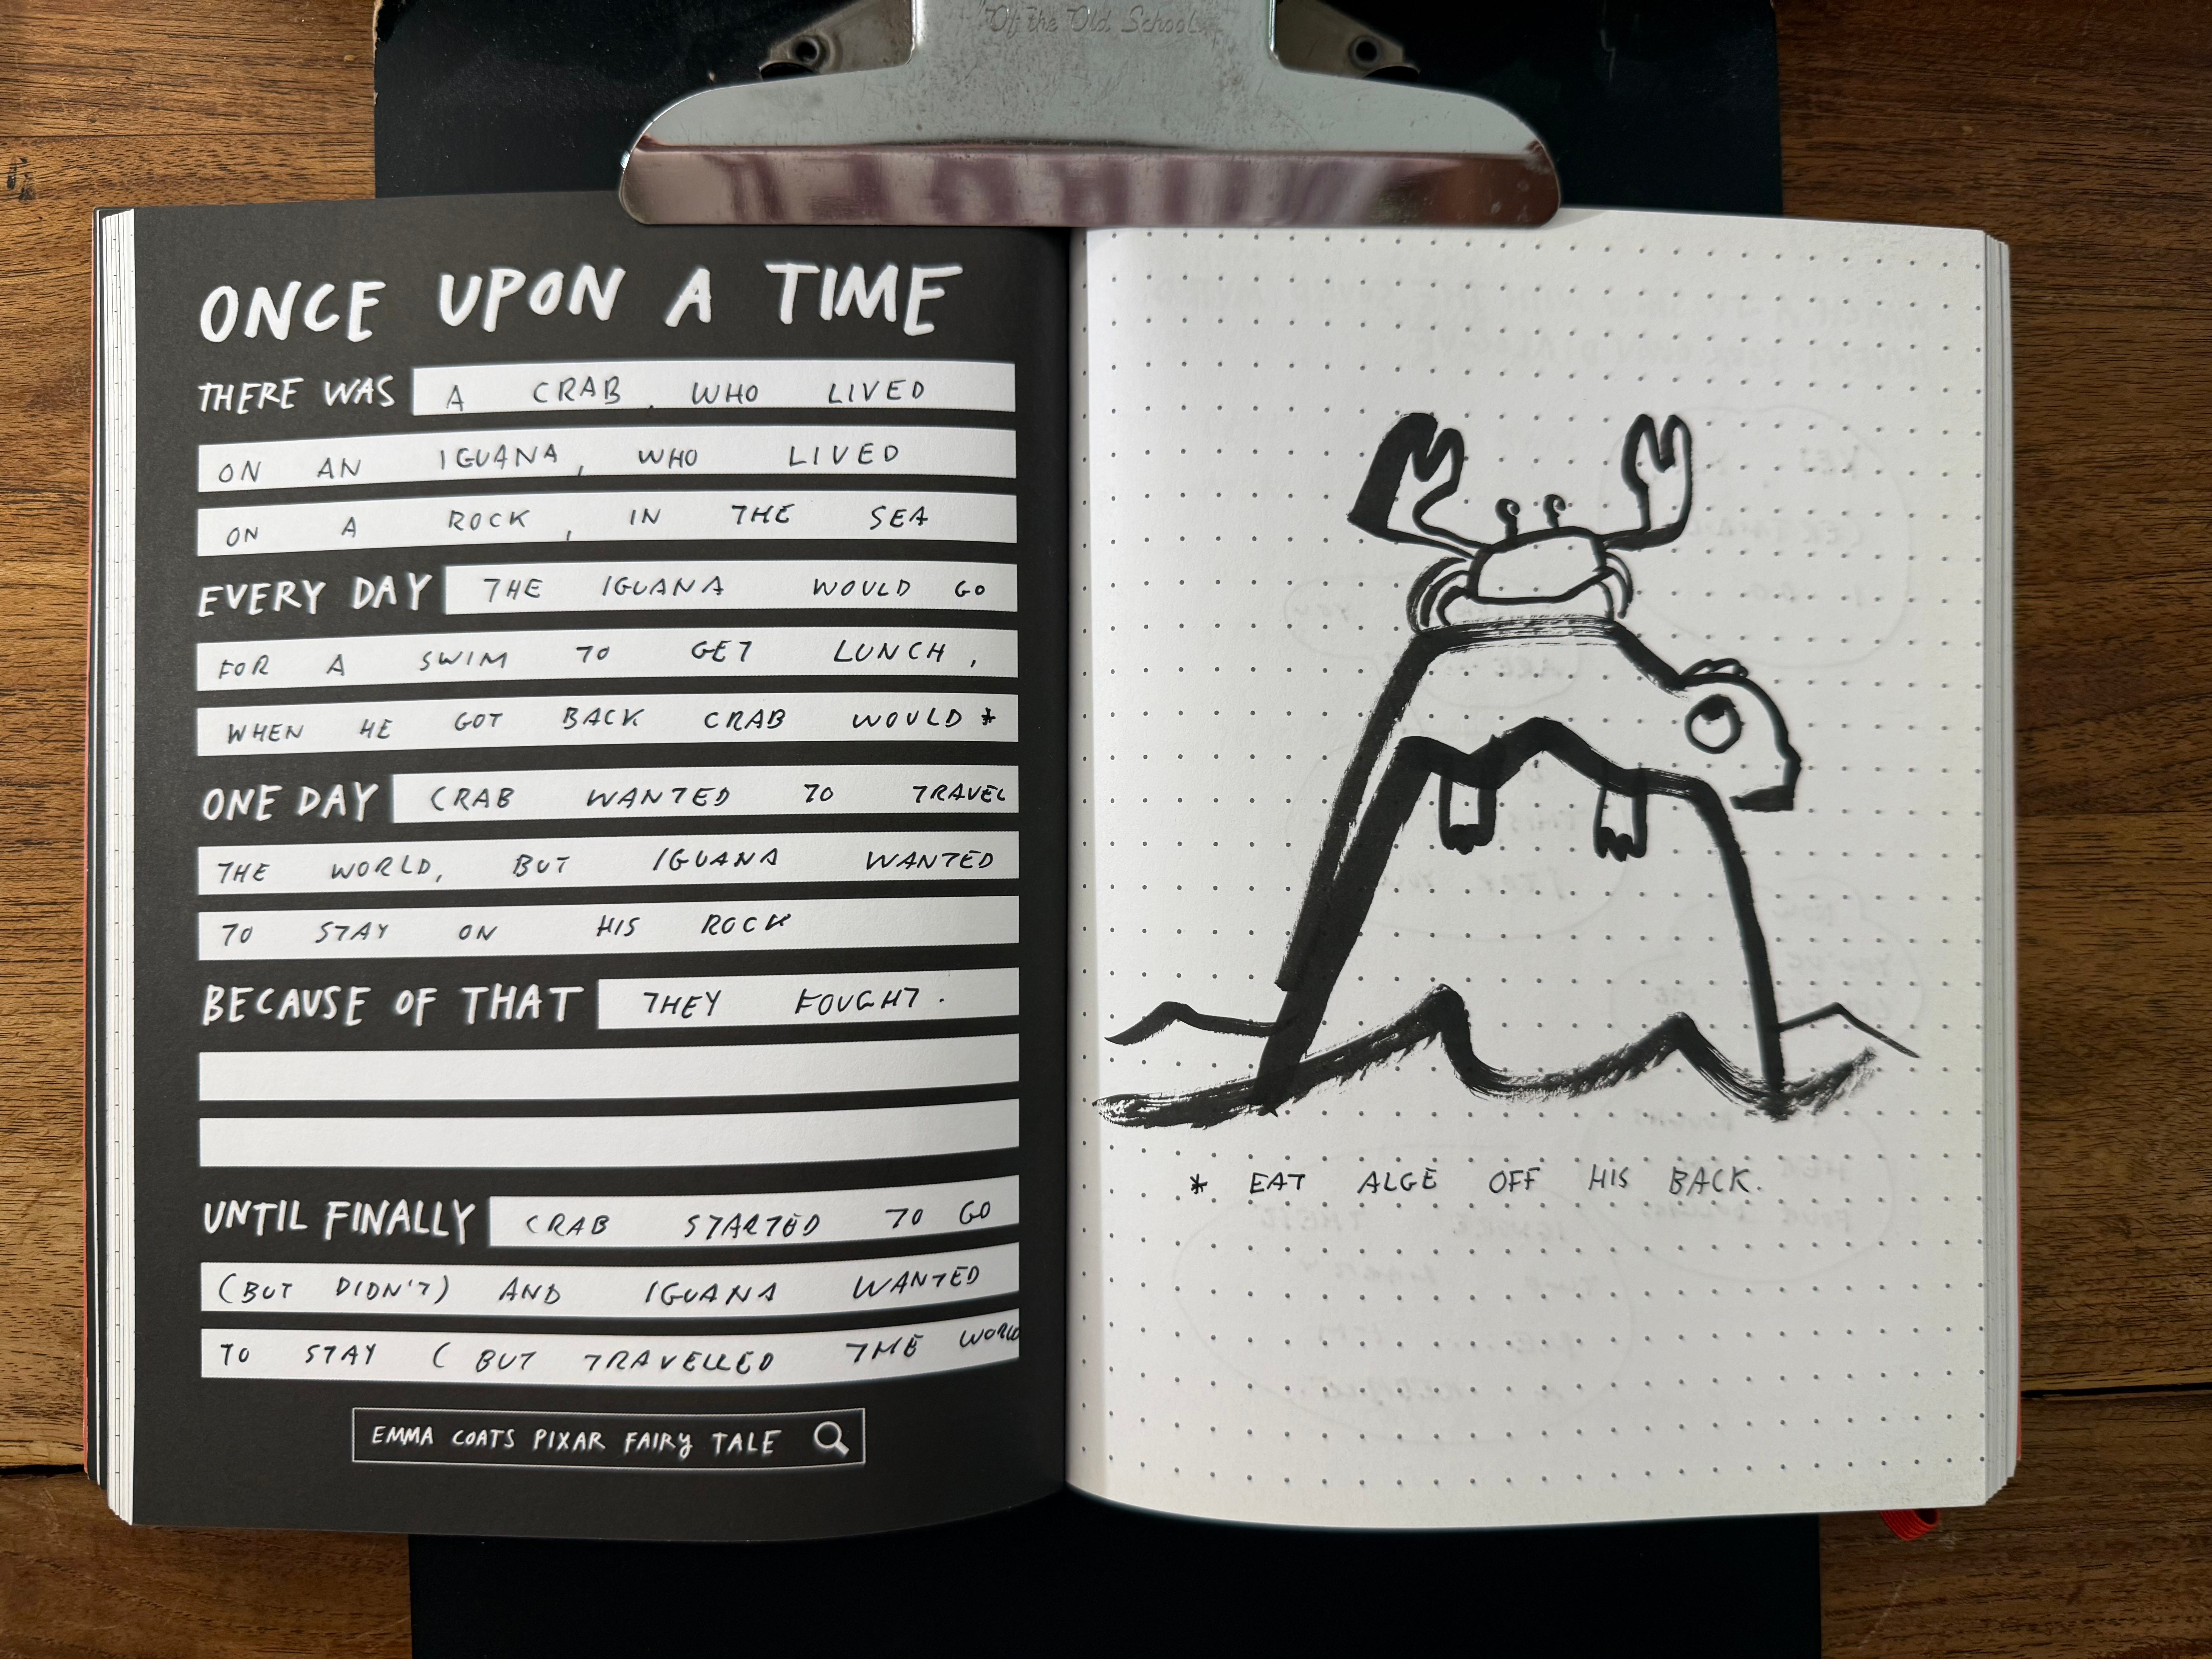 "Of the Old School"
ONCE UPON A TIME
THERE WAS A CRAB, WHO LIVED
ON AN IGUANA, WHO LIVED
ON A ROCK, IN THE SEA
EVERY DAY THE IGUANA WOULD GO
FOR A SWIM TO GET LUNCH,
WHEN HE GOT BACK CRAB WOULD *
ONE DAY CRAB WANTED TO TRAVEL
THE WORLD, BUT IGUANA WANTED
TO STAY ON HIS ROCK
BECAUSE OF THAT THEY FOUGHT.
UNTIL FINALLY CRAB STARTED TO GO
(BUT DIDN'T) AND IGUANA WANTED
TO STAY (BUT TRAVELLED THE WORLD
EMMA COATS PIXAR FAIRY TALE
* EAT ALGE OFF HIS BACK.